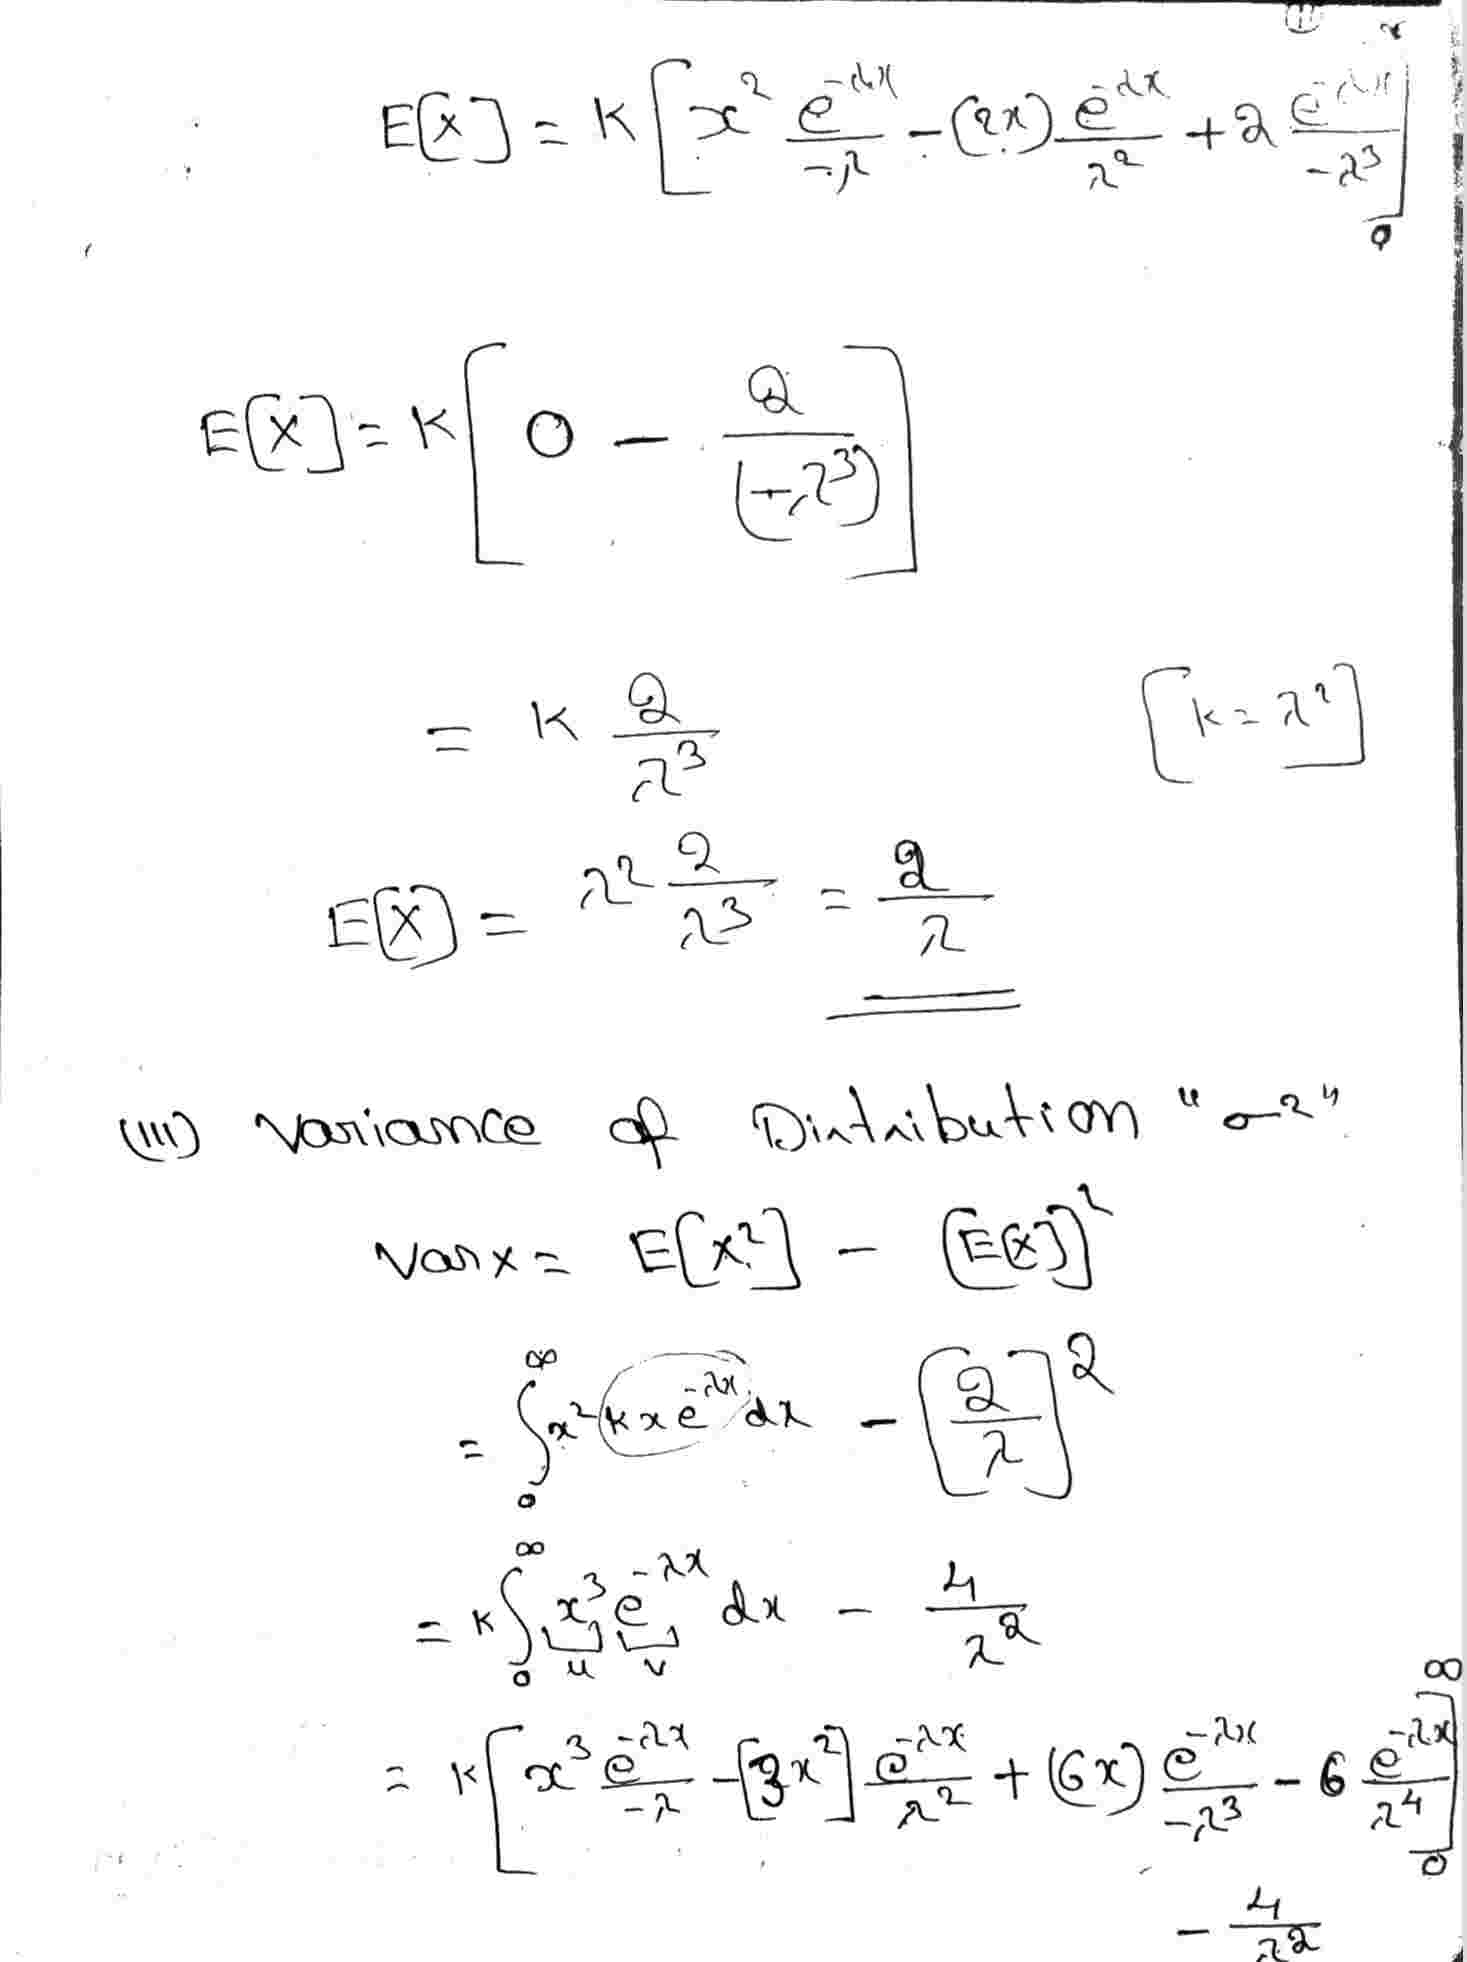 (11)
E[X] = K [ x² e^{-λx}/-λ - (2x) e^{-λx}/λ² + 2 e^{-λx}/-λ³ ]_0
E[X] = K [ 0 - 2/(-λ³) ]
= K 2/λ³ [K = λ²]
E[X] = λ² 2/λ³ = 2/λ
(III) Variance of Distribution "σ²"
Var x = E[x²] - [E[x]]²
= ∫_0^∞ x² K x e^{-λx} dx - [2/λ]²
= K ∫_0^∞ x³ e^{-λx} dx - 4/λ²
u v
= K [ x³ e^{-λx}/-λ - [3x²] e^{-λx}/λ² + (6x) e^{-λx}/-λ³ - 6 e^{-λx}/λ⁴ ]_0^∞
- 4/λ²